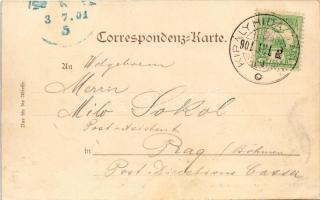 3 7.01
5
Correspondenz-Karte.
KIRÁLYHIDA
901
C
An Wolgeboren
Herrn
Milo Sokol
Post-Assistent
in Prag (Böhmen)
Post-Directions Cassa
Nur für die Adresse.